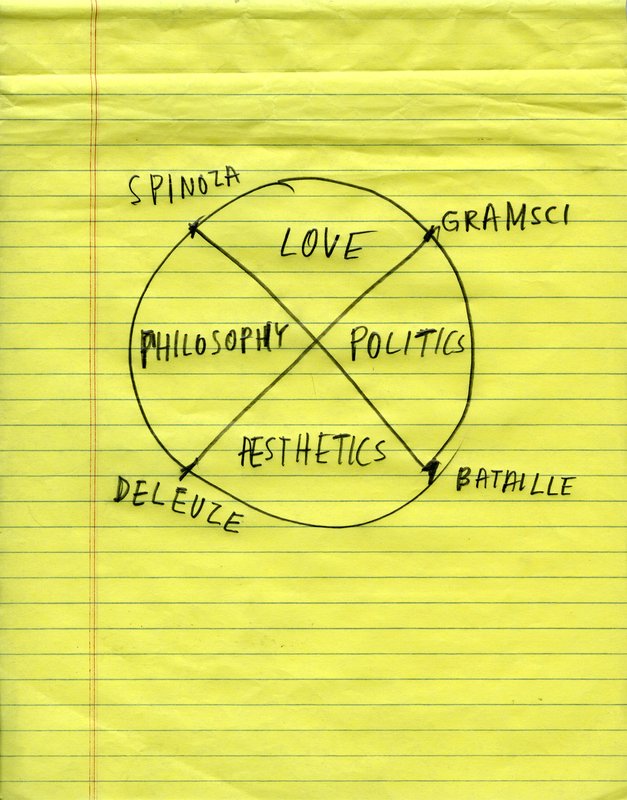 SPINOZA
GRAMSCI
LOVE
PHILOSOPHY
POLITICS
ÆSTHETICS
DELEUZE
BATAILLE